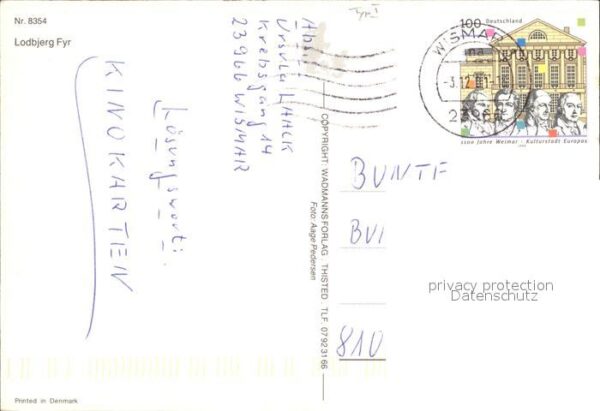 Nr. 8354
Lodbjerg Fyr
Lösungswort:
KINOKARTEN
Abs.:
Ursula HAACK
Krebsgang 14
23966 WISMAR
Typ I
COPYRIGHT: WADMANNSFORLAG · THISTED · TLF. 07923166
Foto: Aage Pedersen
100 Deutschland
1100 Jahre Weimar · Kulturstadt Europas
WISMAR
23966
BUNTE
810
privacy protection
Datenschutz
Printed in Denmark